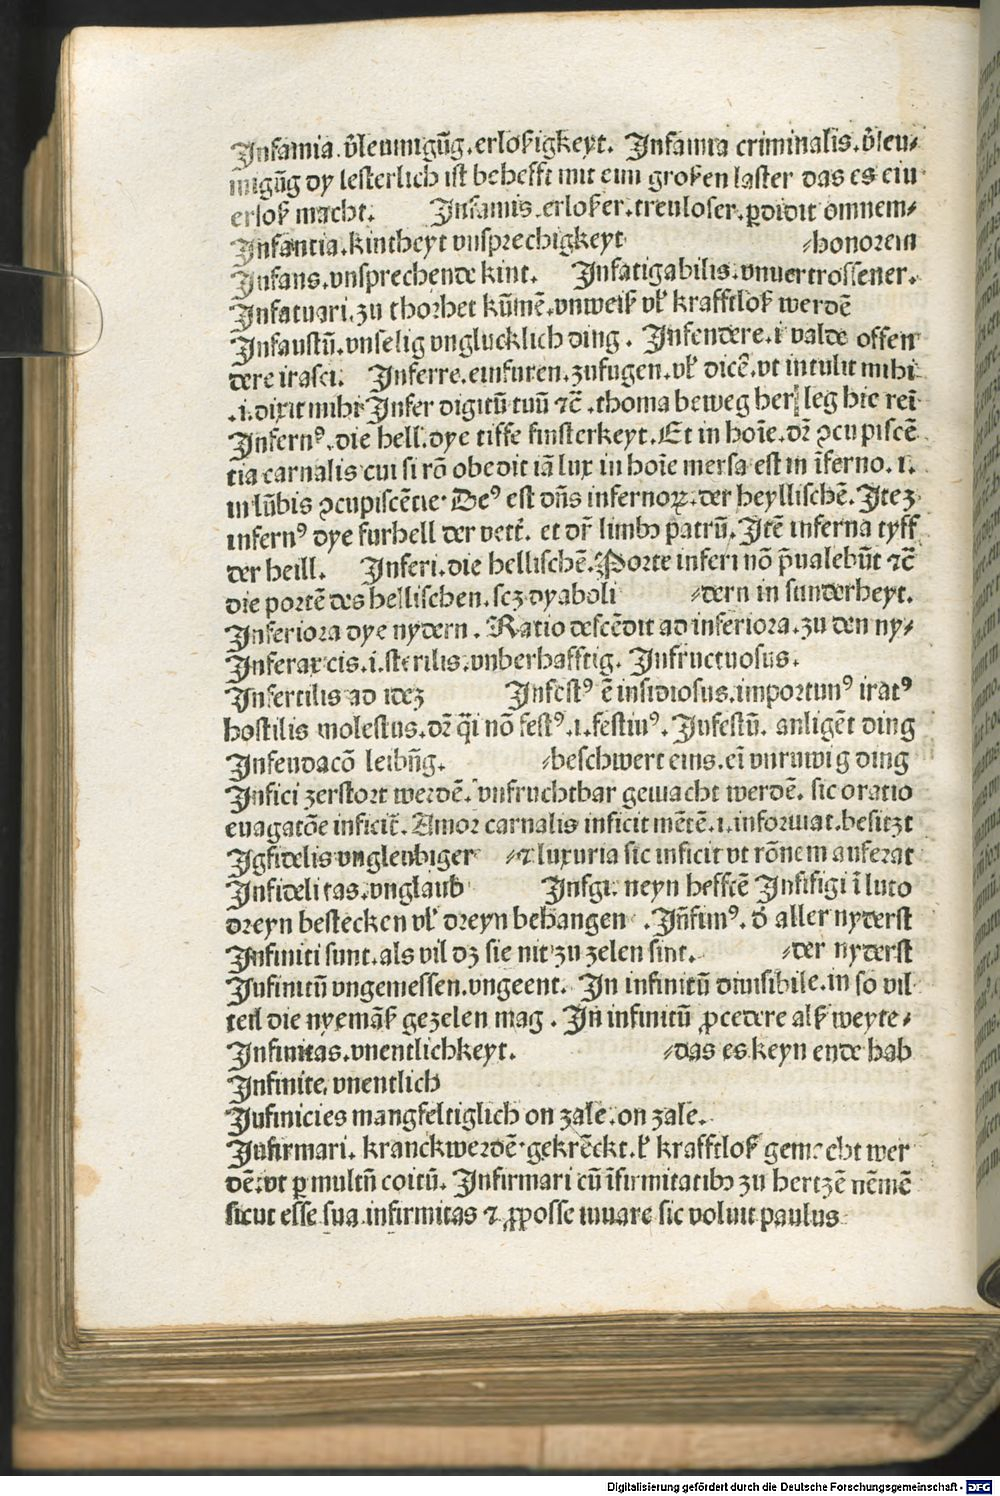 Infamia. v̉leumigūg. erloßigkeyt. Infamia criminalis. v̉leu⸗
migūg dy lesterlich ist behefft mit eim großen laster das es ein
erloß macht. Infamis. erloßer. treuloser. ꝑdidit omnem⸗
Infantia. kintheyt vnsprechigkeyt ⸗honorem
Infans. vnsprechende kint. Infatigabilis. vnuertrossener.
Infatuari. zu thorhet kūmē. vnweiß vl̉ krafftloß werdē
Infaustū. vnselig vnglucklich ding. Infendere. i valde offen
dere irasci. Inferre. einfuren. zufugen. vl̉ dicē. vt intulit mihi
.i. dixit mihi Infer digitū tuū ⁊c̄. thoma beweg her leg hic rei
Infernꝰ. die hell. dye tiffe finsterkeyt. Et in hoīe. dꝛ̄ ꝯcupiscē
tia carnalis cui si rō obedit iā lux in hoīe mersa est in īferno. i.
in lūbis ꝯcupiscētie. Deꝰ est dn̄s infernoꝝ. der heyllischē. Itez
infernꝰ dye furhell der vett̉. et dr̄ limbꝫ patrū. Itē inferna tyff
der heill. Inferi. die hellischē. Porte inferi nō p̄ualebūt ⁊c̄
die portē des hellischen. scz dyaboli ⸗dern in sunderheyt.
Inferiora dye nydern. Ratio descēdit ad inferiora. zu den ny⸗
Inferax cis. i. sterilis. vnberhafftig. Infructuosus.
Infertilis ad idez Infestꝰ ē insidiosus. importunꝰ iratꝰ
hostilis molestus. dꝛ̄ q̄i nō festꝰ. i. festiuꝰ. Infestū. anligēt ding
Infeudacō leihūg. ⸗beschwert eins. ei vnruwig ding
Infici zerstort werdē. vnfruchtbar gemacht werdē. sic oratio
euagatōe inficit̉. Amor carnalis inficit mētē. i. informat. besitzt
Igfidelis vngleubiger ⸗⁊ luxuria sic inficit vt rōnem auferat
Infidelitas. vnglaub Infgi. neyn hefftē Infifigi ī luto
dreyn bestecken vl̉ dreyn behangen. Inf̄imꝰ. d̉ aller nyderst
Infiniti sunt. als vil dz sie nit zu zelen sint. ⸗der nyderst
Infinitū vngemessen. vngeent. In infinitū diuisibile. in so vil
teil die nyemāß gezelen mag. In infinitū ꝓcedere alß weyte⸗
Infinitas. vnentlichkeyt. ⸗das es keyn ende hab
Infinite. vnentlich
Infinicies mangfeltiglich on zale. on zale.
Infirmari. kranckwerdē. gekrēckt. l̉ krafftloß gemacht wer
dē. vt ꝑ multū coitū. Infirmari cū īfirmitatibꝫ zu hertzē nēmē
sicut esse sua infirmitas ⁊ ꝓposse iuuare sic voluit paulus
Digitalisierung gefördert durch die Deutsche Forschungsgemeinschaft - DFG